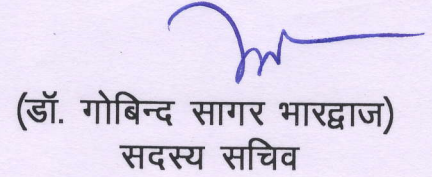 (डॉ. गोबिन्द सागर भारद्वाज)
सदस्य सचिव